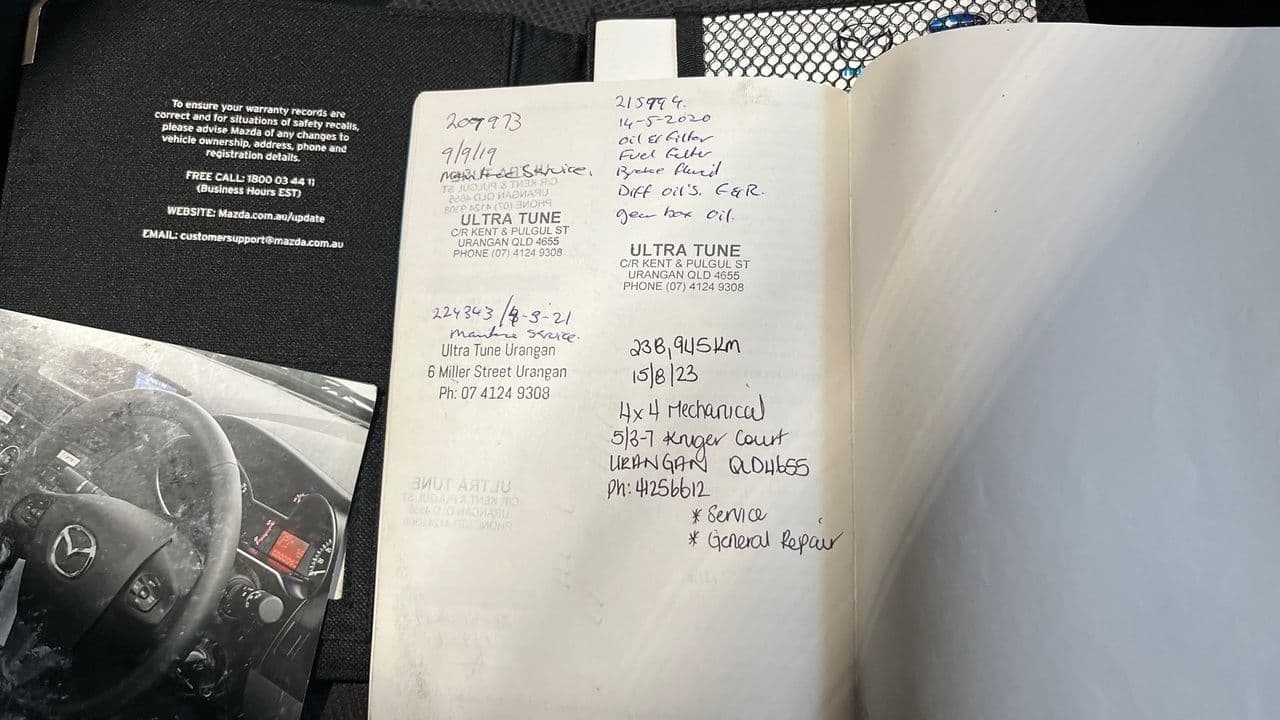 To ensure your warranty records are
correct and for situations of safety recalls,
please advise Mazda of any changes to
vehicle ownership, address, phone and
registration details.
FREE CALL: 1800 03 44 11
(Business Hours EST)
WEBSITE: Mazda.com.au/update
EMAIL: customersupport@mazda.com.au
207973
9/9/19
Service.
ULTRA TUNE
C/R KENT & PULGUL ST
URANGAN QLD 4655
PHONE (07) 4124 9308
224343 / -3-21
Service.
Ultra Tune Urangan
6 Miller Street Urangan
Ph: 07 4124 9308
ULTRA TUNE
C/R KENT & PULGUL ST
URANGAN QLD 4655
PHONE (07) 4124 9308
215994.
14-5-2020
Oil & Filter
Fuel Filter
Brake Fluid
Diff Oil's. F&R.
gear box oil.
ULTRA TUNE
C/R KENT & PULGUL ST
URANGAN QLD 4655
PHONE (07) 4124 9308
238,945km
15/8/23
4x4 Mechanical
5/3-7 Kruger Court
URANGAN QLD4655
Ph: 41256612
* Service
* General Repair